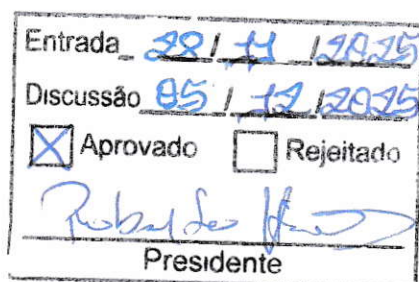 Entrada 28 / 11 / 2025
Discussão 05 / 12 / 2025
Aprovado Rejeitado
Presidente